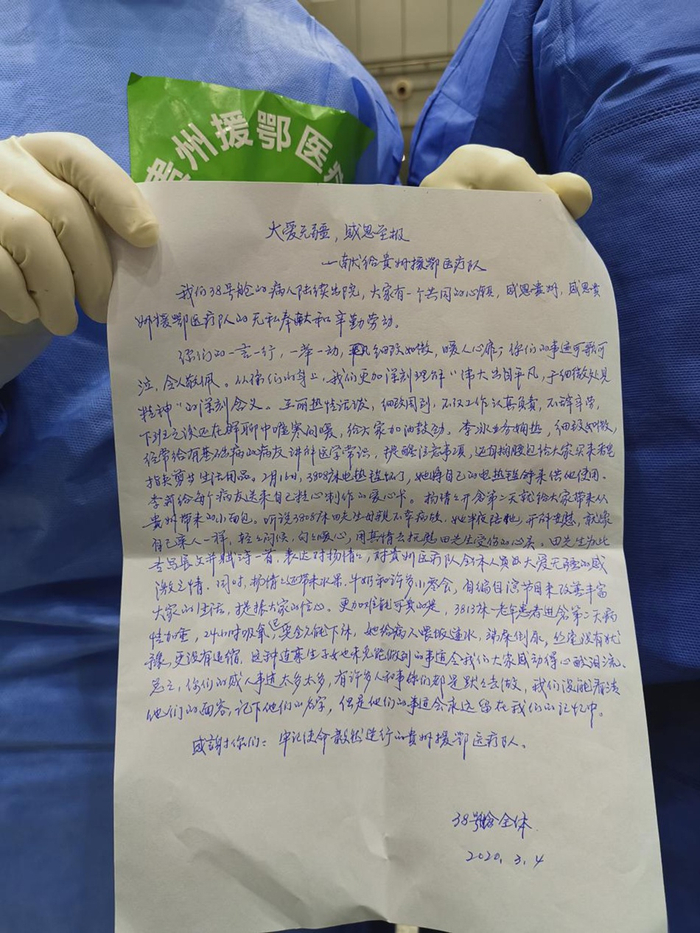 贵州援鄂医疗
大爱无疆，感恩至报
—献给贵州援鄂医疗队
我们38号舱的病人陆续出院，大家有一个共同的心愿，感恩贵州，感恩贵
州援鄂医疗队的无私奉献和辛勤劳动。
你们的一言一行，一举一动，细致如微，暖人心扉；你们的事迹可歌可
泣，令人敬佩。从你们的身上，我们更加深刻理解“伟大出自平凡，于细微处见
精神”的深刻含义。王丽热情活泼，细致周到，不仅工作认真负责，不辞辛劳，
下班之余还在群聊中嘘寒问暖，给大家加油鼓劲。李冰业务娴熟，细致如微，
经常给有基础病的病友讲解医学常识，提醒注意事项，还自掏腰包给大家买来
指夹剪等生活用品。2月16日，3808床电热毯坏了，她将自己的电热毯拿来供他使用。
李莉给每个病友送来自己精心制作的爱心卡。杨倩之开舱第二天就给大家带来从
贵州带来的小面包。听说3808床田先生母亲不幸病故，她半夜陪她，开辟思愁，就像
自己亲人一样，轻之问候，句之暖心，用真情去抚慰田先生受伤的心灵，田先生为此
专写长文并赋诗一首，表达对杨倩之，对贵州医疗队全体人员大爱无疆的感
激之情。同时，杨倩之还带来水果、牛奶和许多小零食，自编自演节目来改善丰富
大家的生活，提振大家的信心。更加难能可贵的是，3813床一老年患者进舱第二天病
情加重，24小时吸氧，完全不能下床，她给病人喂饭递水，端屎倒尿，丝毫没有犹
豫，更没有退缩，这种连亲生子女也未必能做到的事迹令我们大家感动得心酸泪流。
总之，你们的感人事迹太多太多，有许多人和事你们都是默之去做，我们没能看清
他们的面容，记下他们的名字，但是他们的事迹会永远留在我们的记忆中。
感谢你们：牢记使命毅然逆行的贵州援鄂医疗队。
38号舱全体
2020.3.4